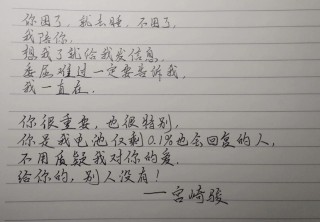 你困了，就去睡，不困了，
我陪你.
想我了就给我发信息.
委屈难过一定要告诉我，
我一直在.
你很重要，也很特别，
你是我电池仅剩0.1%也会回复的人，
不用质疑我对你的爱.
给你的，别人没有！
——宫崎骏